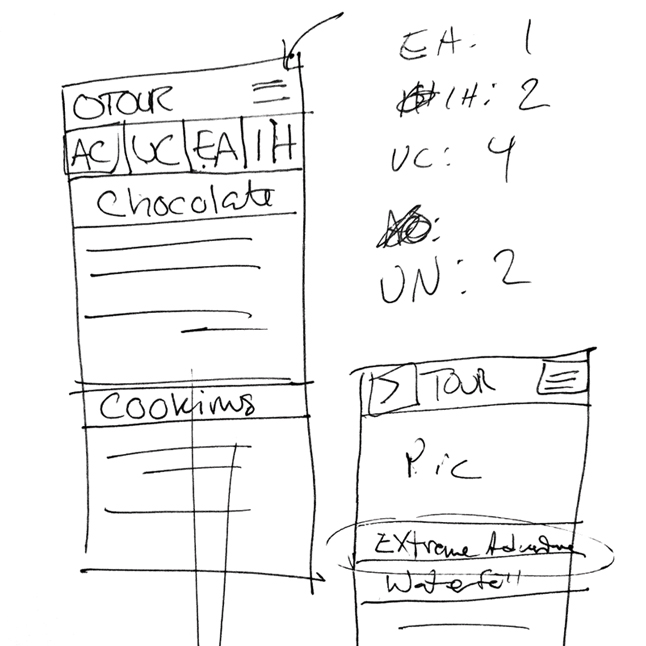 OTOUR
AC UC EA IH
Chocolate
Cookims
EA. 1
IH: 2
UC: 4
UN: 2
TOUR
Pic
Extreme Adventure
Waterfall